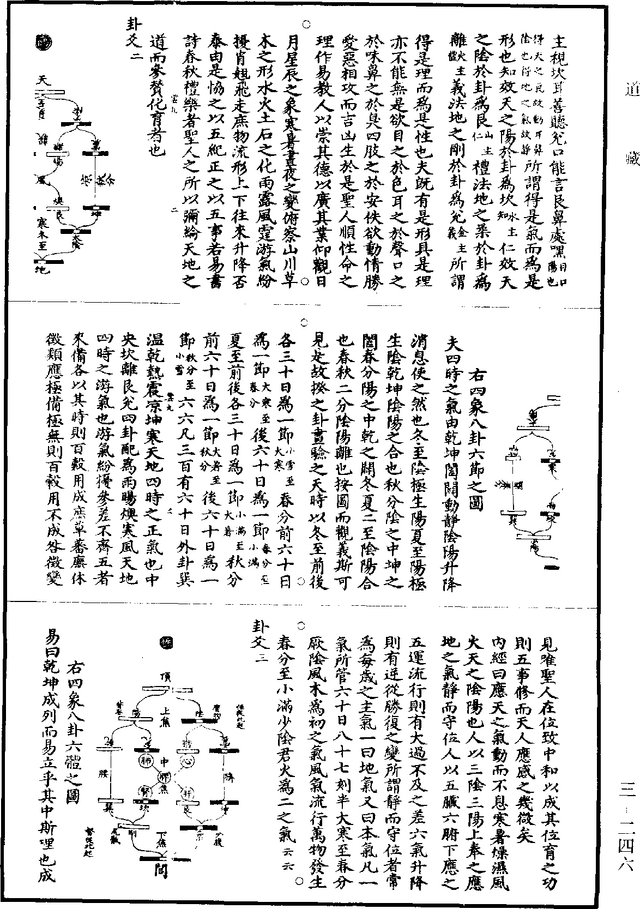 道藏
主視坎耳善聽兌口能言艮鼻處嗅目口陽也
得天之氣故動耳鼻陰也得地之氣故靜所謂得是氣而爲是
形也知效天之陽於卦爲坎水主知仁效天
之陰於卦爲艮山主仁禮法地之柔於卦爲
離火主禮義法地之剛於卦爲兌金主義所謂
得是理而爲是性也夫既有是形具是理
亦不能無是欲目之於色耳之於聲口之
於味鼻之於臭四肢之於安佚欲動情勝
愛惡相攻而吉凶生於是聖人順性命之
理作易教人以崇其德以廣其業仰觀日
月星辰之象寒暑晝夜之變俯察山川草
木之形水火土石之化雨露風霆游氣紛
擾肖翹飛走庶物流形上下往來升降否
泰由是協之以五紀正之以五事若易書
詩春秋禮樂者聖人之所以彌綸天地之
道而參贊化育者也
卦爻二
天
寒
冬至
地
右四象八卦六節之圖
夫四時之氣由乾坤闔闢動靜陰陽升降
消息使之然也冬至陰極生陽夏至陽極
生陰乾坤陰陽之合也秋分陰之中坤之
闔春分陽之中乾之闢冬夏二至陰陽合
也春秋二分陰陽離也按圖而觀義斯可
見是故揆之卦畫驗之天時以冬至前後
各三十日爲一節小雪至大寒春分前六十日
爲一節大寒至春分後六十日爲一節春分至小滿
夏至前後各三十日爲一節小滿至大暑秋分
前六十日爲一節大暑至秋分後六十日爲一
節秋分至小雪六六凡三百有六十日外卦巽
溫乾熱震涼坤寒天地四時之正氣也中
央坎離艮兌四卦配爲雨暘燠寒風天地
四時之游氣也游氣紛擾參差不齊五者
來備各以其時則百穀用成庶草蕃廡休
徵類應極備極無則百穀用不成咎徵變
見唯聖人在位致中和以成其位育之功
則五事修而天人應感之幾微矣
內經曰應天之氣動而不息寒暑燥濕風
火天之陰陽也人以三陰三陽上奉之應
地之氣靜而守位人以五臟六腑下應之
五運流行則有大過不及之差六氣升降
則有逆從勝復之變所謂靜而守位者常
爲每歲之主氣一曰地氣又曰本氣凡一
氣所管六十日八十七刻半大寒至春分
厥陰風木爲初之氣風氣流行萬物發生
春分至小滿少陰君火爲二之氣云云
卦爻三
頂
上焦
中焦
心
肺
肝
脾
腎
腰
下焦
右四象八卦六體之圖
易曰乾坤成列而易立乎其中斯理也成
三-二四六